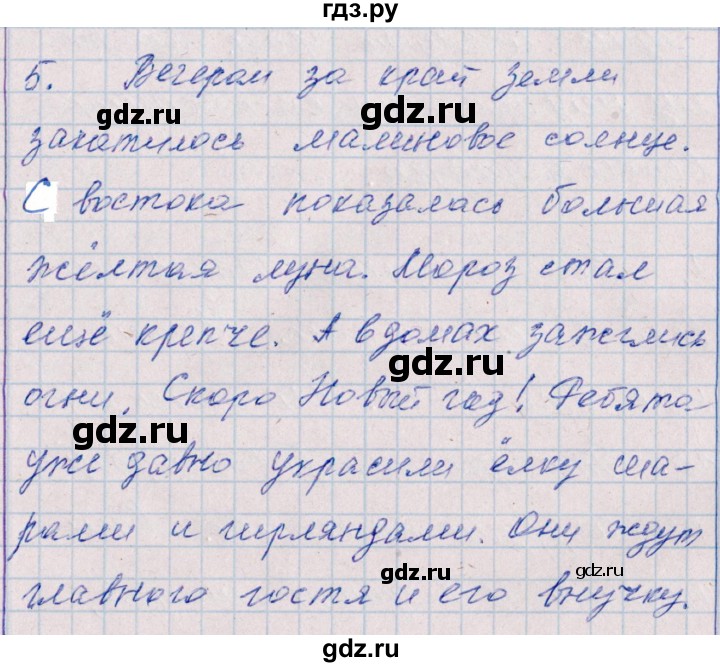 гдз.ру
5. Вечером за край земли
gdz.ru gdz.ru
закатилось малиновое солнце.
С востока показалась большая
gdz.ru
жёлтая луна. Мороз стал
ещё крепче. А в домах зажглись
gdz.ru
огни. Скоро Новый год! Ребята
gdz.ru
уже давно украсили ёлку ша-
рами и гирляндами. Они ждут
gdz.ru gdz.ru
главного гостя и его внучку.
gdz.ru